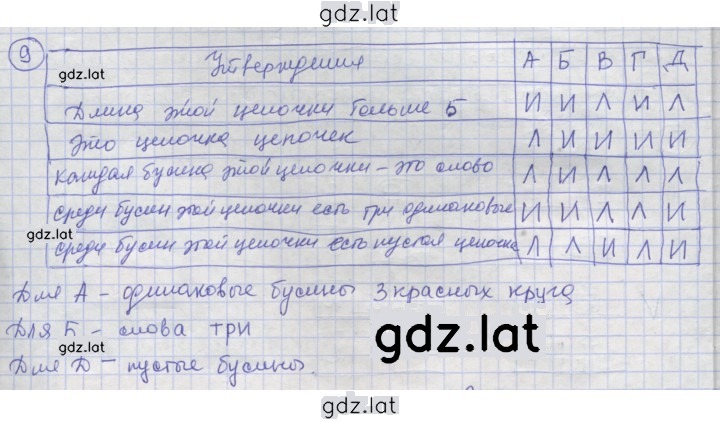 gdz.lat
9
Утверждения А Б В Г Д
gdz.lat
Длина этой цепочки больше 5 И И Л И Л
Это цепочка цепочек Л И И И И
каждая бусина этой цепочки - это слово Л И Л Л Л
среди бусин этой цепочки есть три одинаковые И И Л Л И
gdz.lat
среди бусин этой цепочки есть пустая цепочка Л Л И Л И
Для А - одинаковые бусины 3 красных круга
Для Б - слова три
gdz.lat
gdz.lat
Для Д - пустые бусины.
gdz.lat